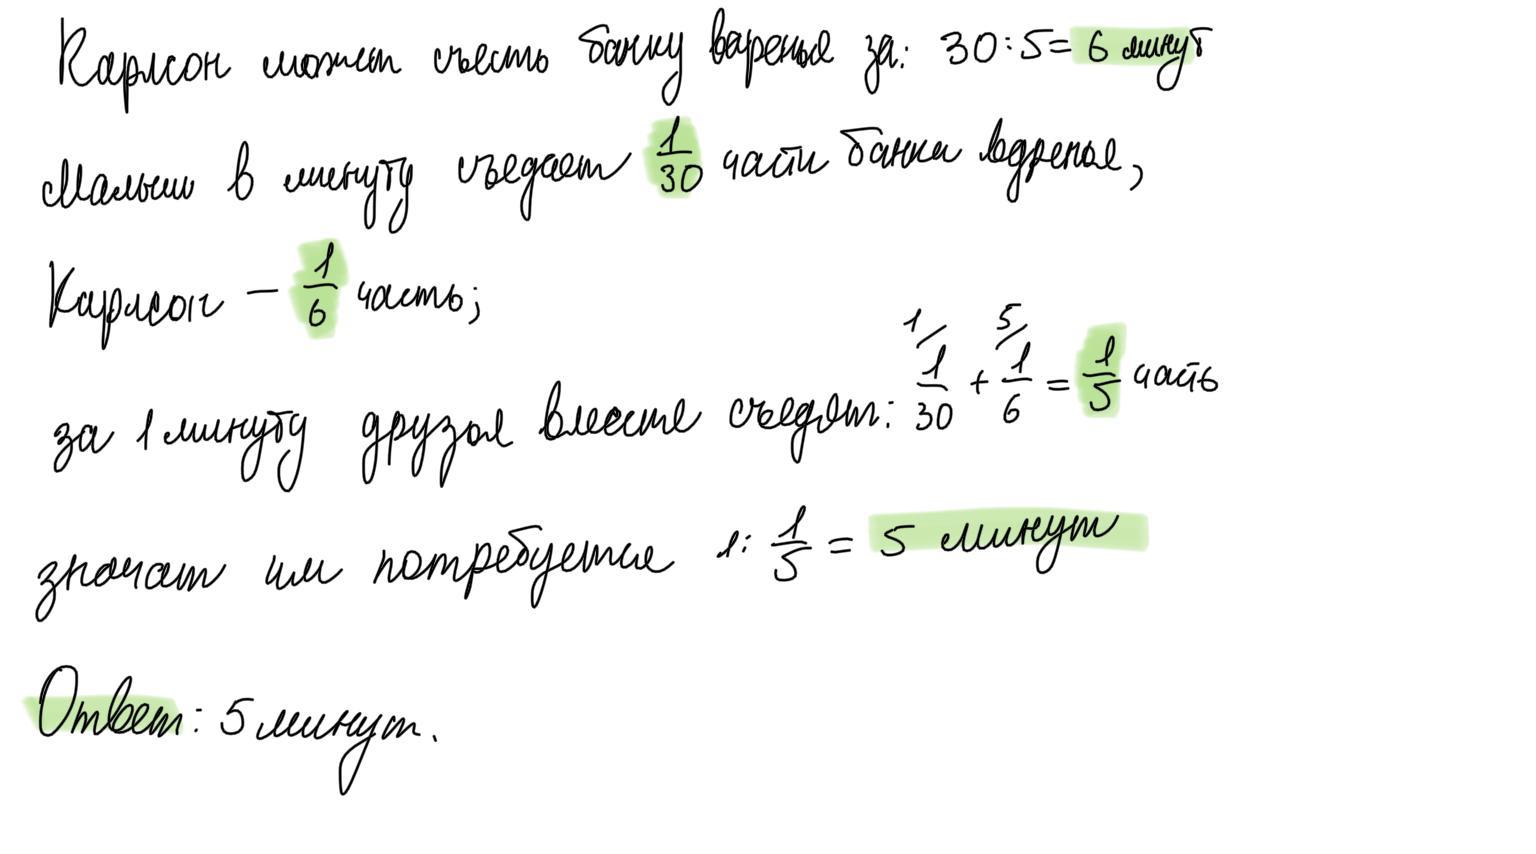 Карлсон может съесть банку варенья за: 30:5= 6 минут
Малыш в минуту съедает 1/30 части банки варенья,
Карлсон – 1/6 часть;
за 1 минуту друзья вместе съедят: 1/ 1/30 + 5/ 1/6 = 1/5 часть
значит им потребуется 1: 1/5 = 5 минут
Ответ: 5 минут.